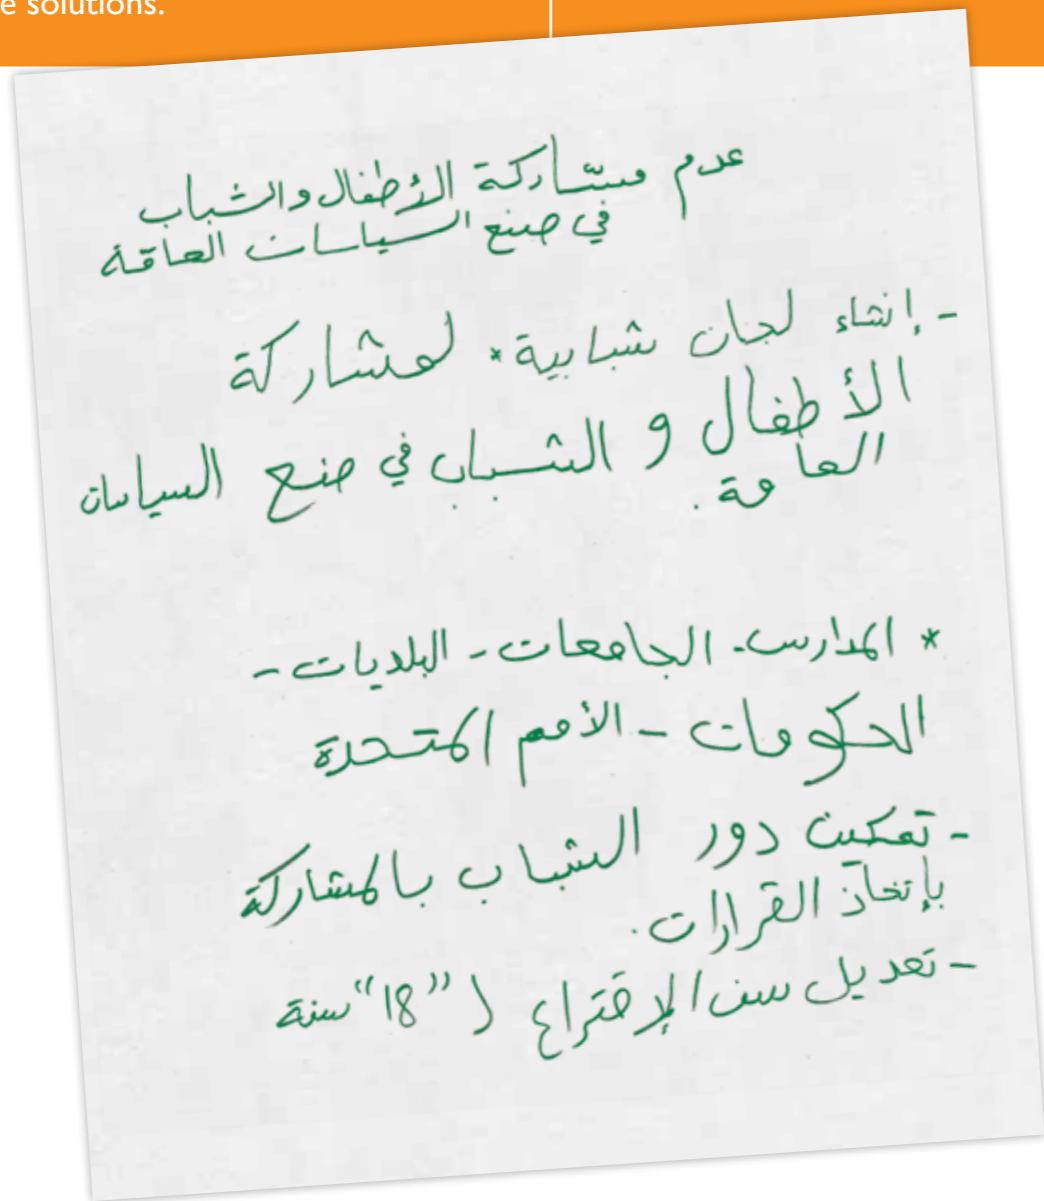 e solutions.
عدم مشاركة الأطفال والشباب
في صنع السياسات العامة
- إنشاء لجان شبابية* لمشاركة
الأطفال و الشباب في صنع السياسات
العامة.
* المدارس - الجامعات - البلديات -
الحكومات - الأمم المتحدة
- تمكين دور الشباب بالمشاركة
بإتخاذ القرارات.
- تعديل سن الإقتراع ل "18" سنة